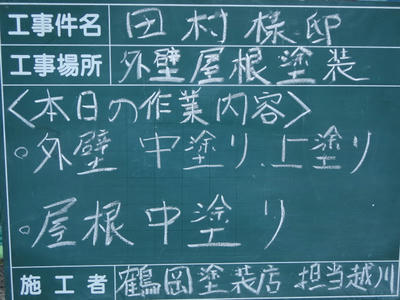 工事件名 田村様邸
工事場所 外壁屋根塗装
<本日の作業内容>
○外壁 中塗り、上塗り
○屋根中塗り
施工者 鶴岡塗装店 担当越川